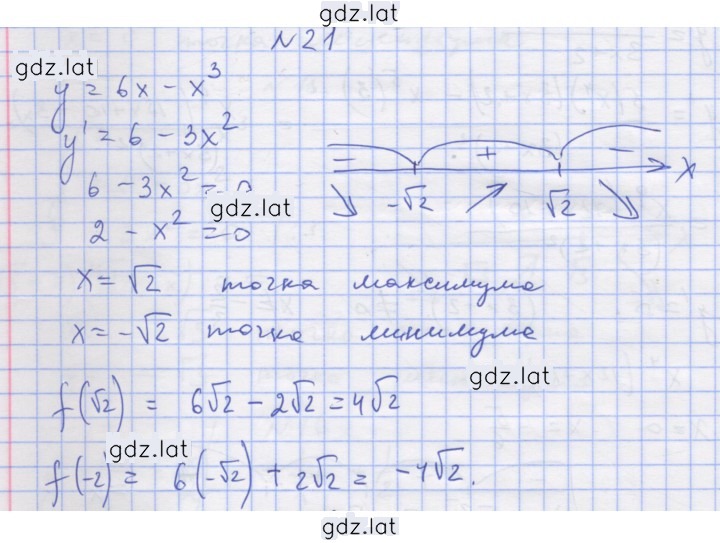 gdz.lat
N21
gdz.lat
y = 6x - x³
y' = 6 - 3x²
6 - 3x² = 0
gdz.lat
2 - x² = 0
- + - x
-√2 √2
x = √2 точка максимума
x = -√2 точка минимума
gdz.lat
f(√2) = 6√2 - 2√2 = 4√2
gdz.lat
f(-2) = 6(-√2) + 2√2 = -4√2.
gdz.lat